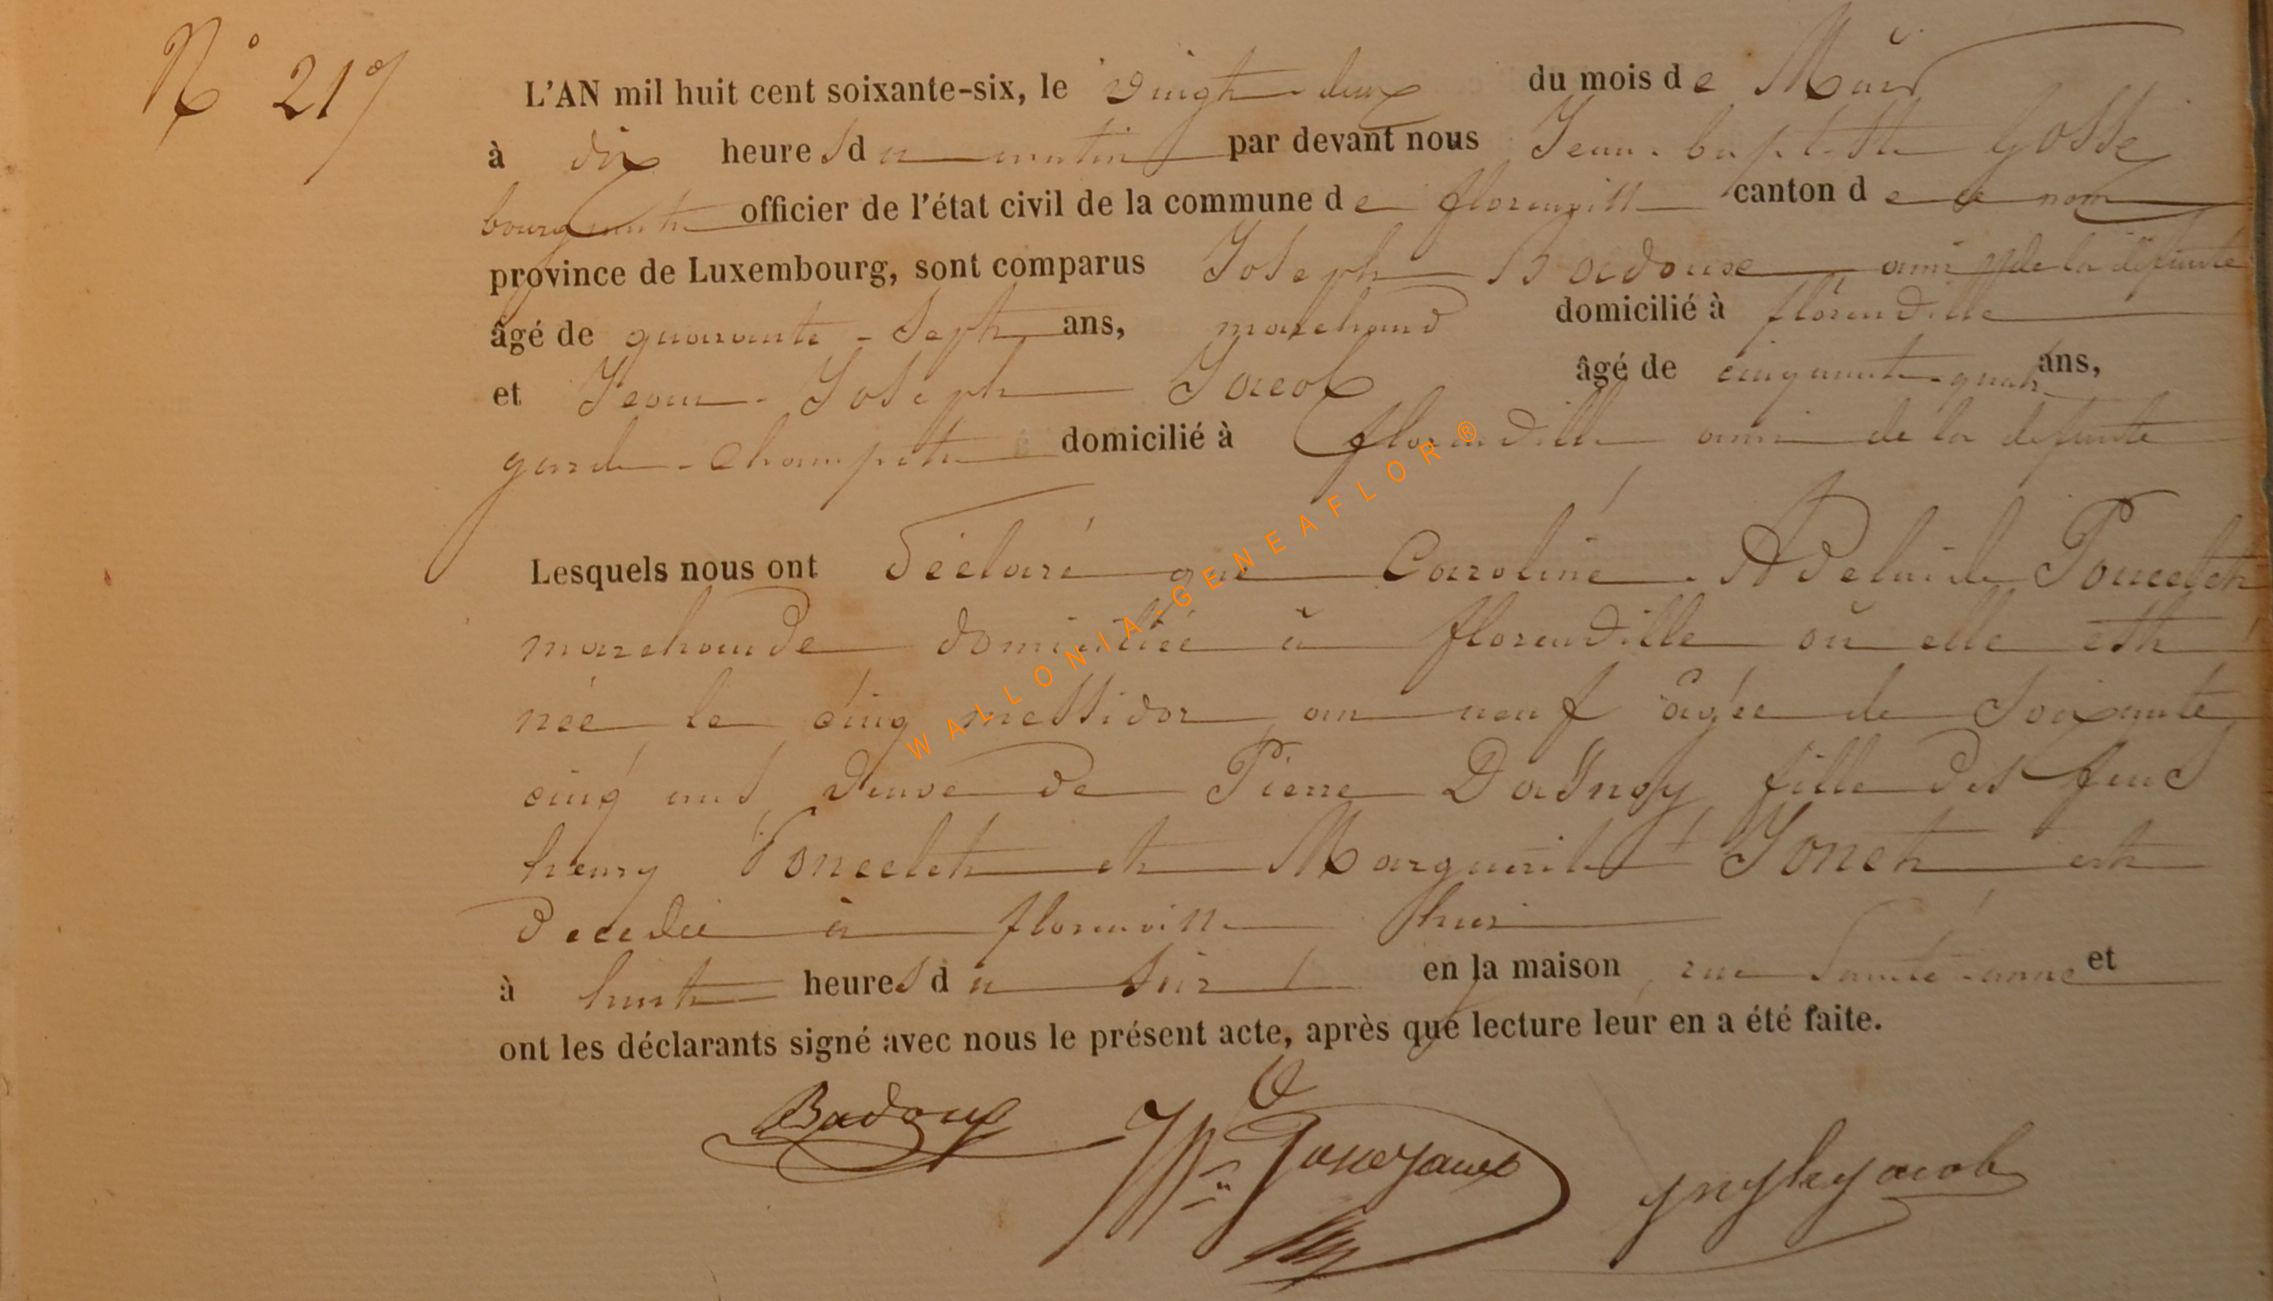 N° 21
L'AN mil huit cent soixante-six, le vingt-deux du mois de Mars
à dix heures du matin par devant nous Jean-baptiste Gosse
bourgmestre officier de l'état civil de la commune de florenville canton de ce nom
province de Luxembourg, sont comparus Joseph Badoux ami de la défunte
âgé de quarante-sept ans, marchand domicilié à florenville
et Jean-Joseph Jacob âgé de cinquante-quatre ans,
garde-champêtre domicilié à florenville ami de la defunte
Lesquels nous ont déclaré que Caroline Adelaide Poncelet
marchande domiciliée à florenville où elle est
née le cinq messidor an neuf âgée de soixante
cinq ans, veuve de Pierre Dasnoy, fille des feus
henry Poncelet et Marguerite Jonet est
décédée à florenville hier
à huit heures du soir en la maison rue Sainte-anne et
ont les déclarants signé avec nous le présent acte, après que lecture leur en a été faite.
Badoux
WALLONIA-GENEAFLOR®